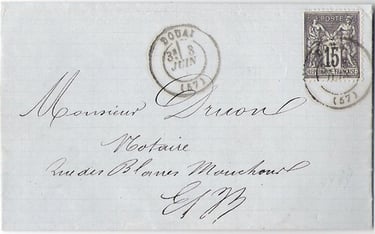 DOUAI
3E
8
JUIN
(57)
POSTE
15
REPUBLIQUE FRANCAISE
(57)
Monsieur Drion
Notaire
rue des Blancs Mouchons
E/V